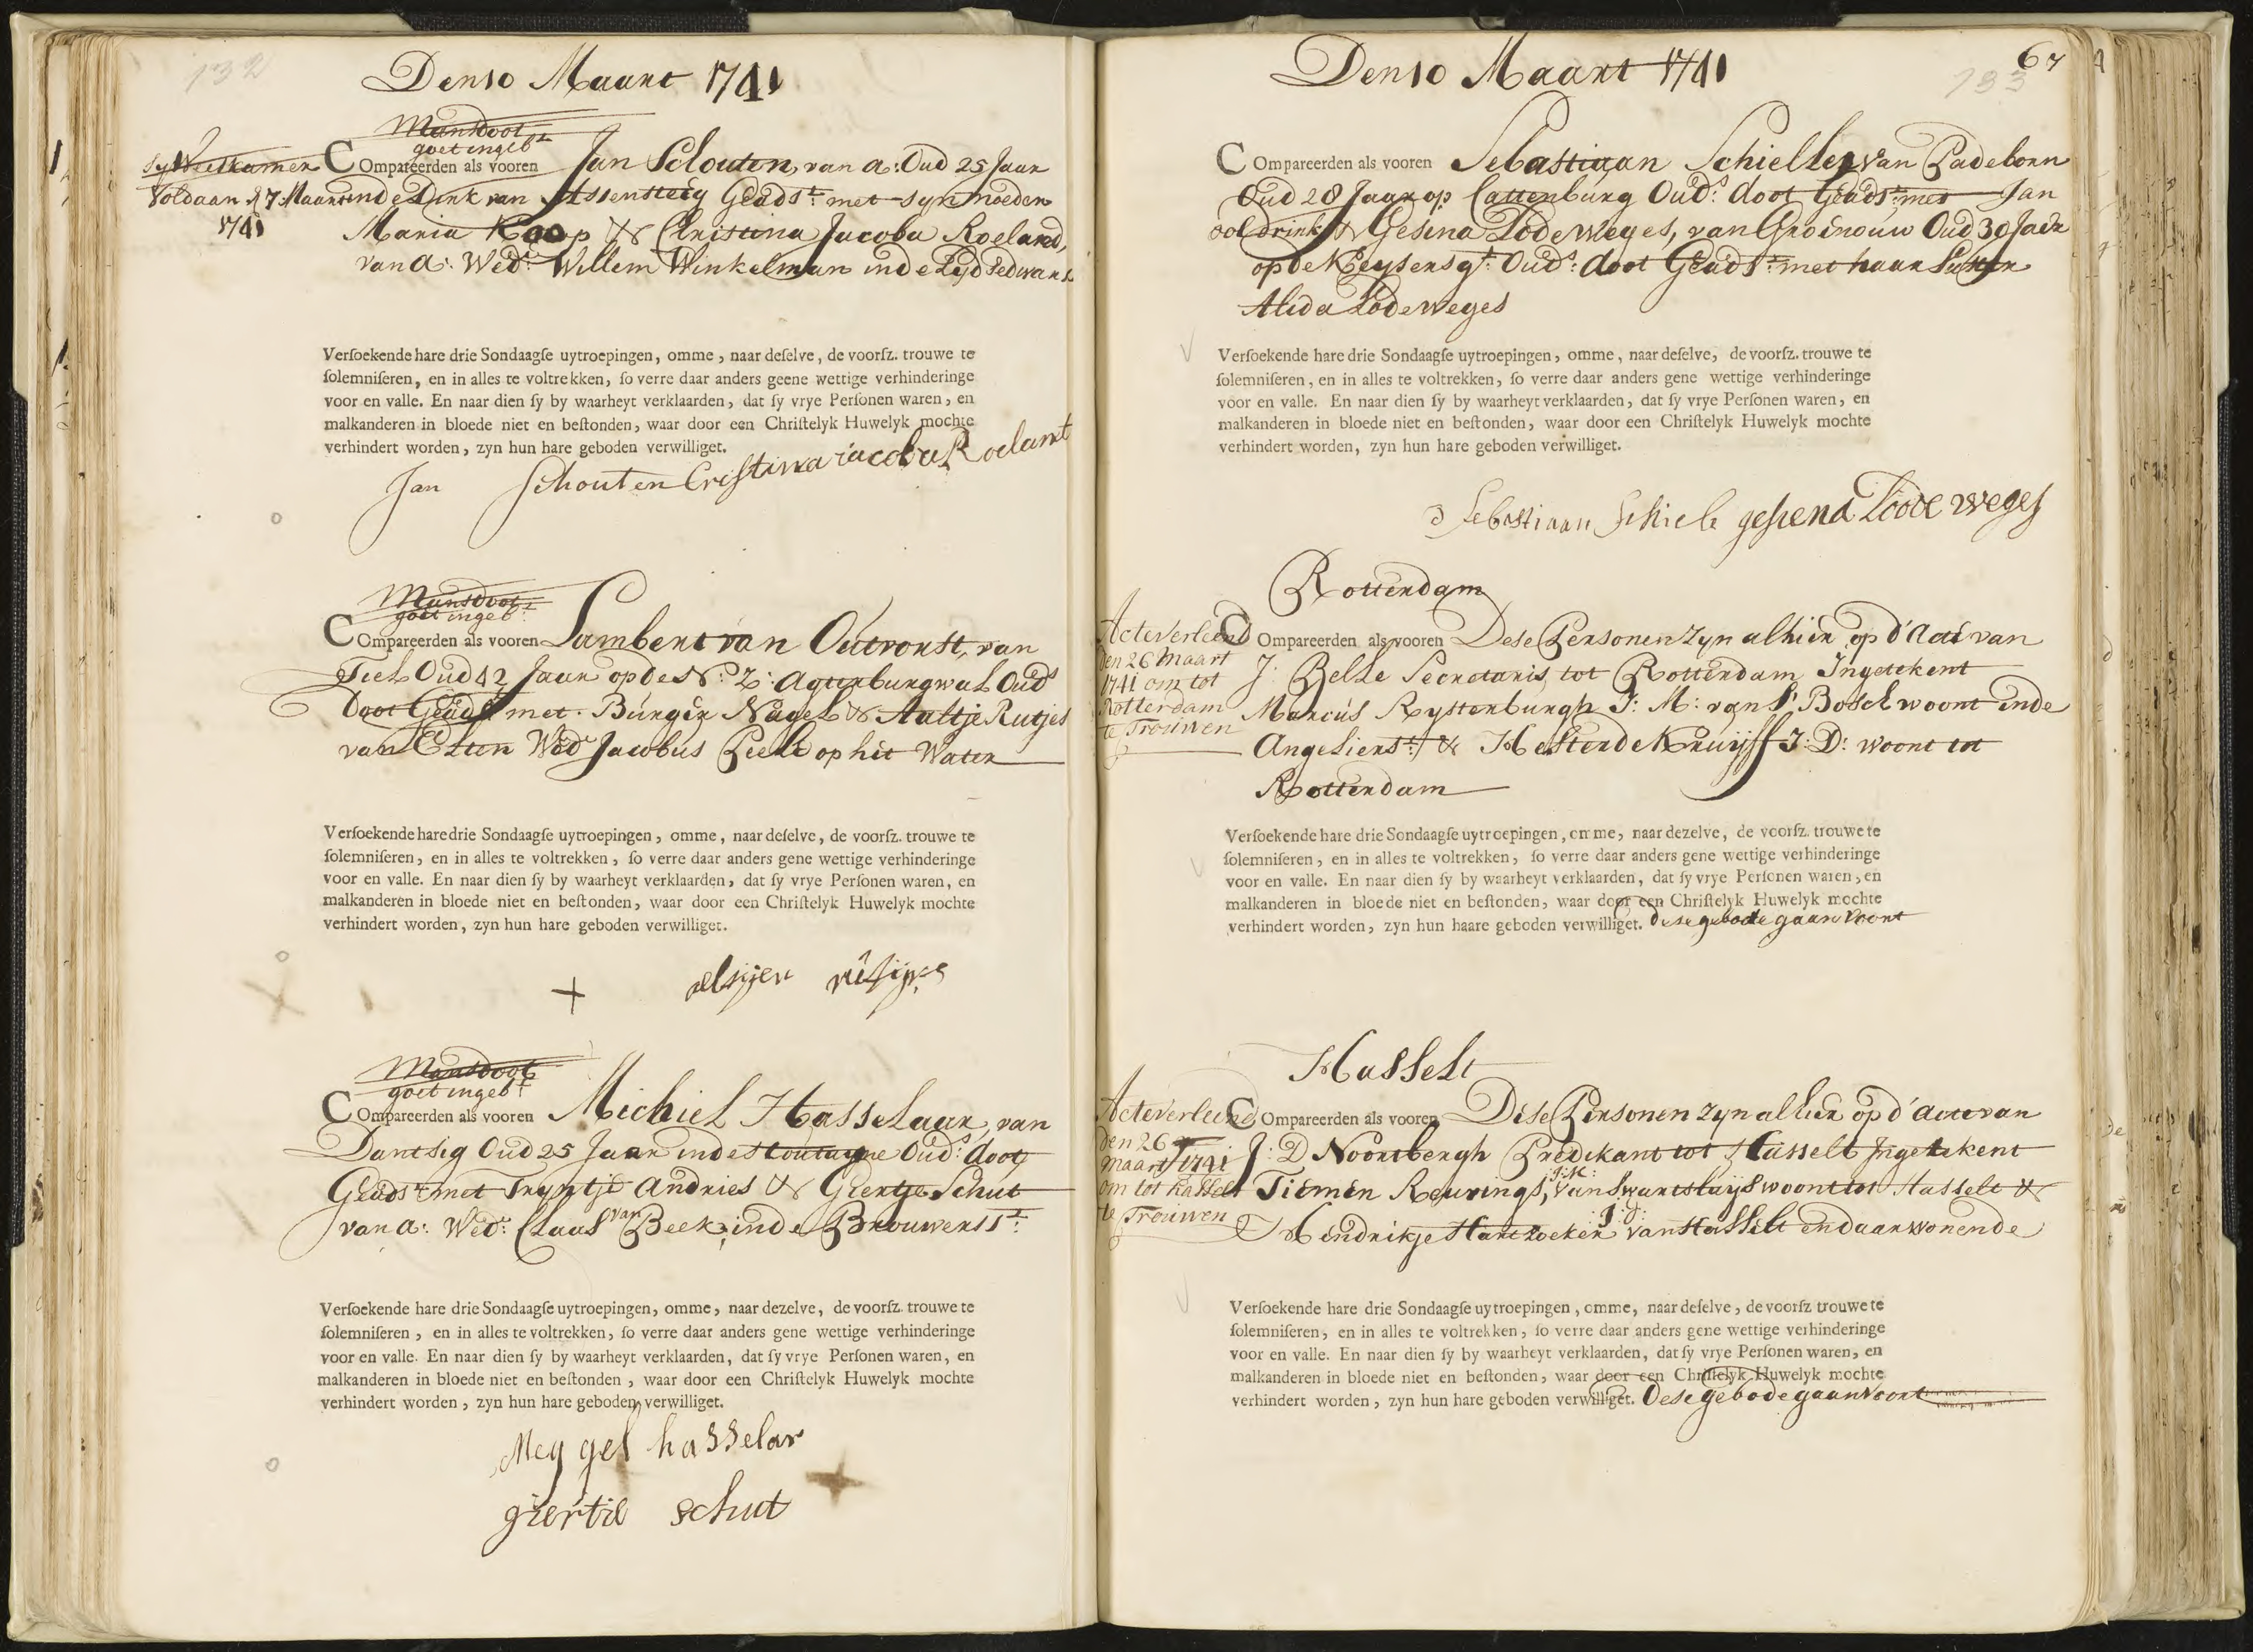 132
Den 10 Maart 1741
Mans doot
goet ingeb^t
sy Weeskamer
Voldaan d 7 Maart
1741
Compareerden als vooren Jan Schouten, van a: Oud 25 Jaar
in de Dirk van Assensteeg Geads^t: met syn moeder
Maria Kaop & Christina Jacoba Roeland,
van a: Wed: Willem Winkelman in de Leydsedwars
Verſoekende hare drie Sondaagſe uytroepingen, omme, naar deſelve, de voorſz. trouwe te
ſolemniſeren, en in alles te voltrekken, ſo verre daar anders geene wettige verhinderinge
voor en valle. En naar dien ſy by waarheyt verklaarden, dat ſy vrye Perſonen waren, en
malkanderen in bloede niet en beſtonden, waar door een Chriſtelyk Huwelyk mochte
verhindert worden, zyn hun hare geboden verwilliget.
Jan Schouten Cristina iacoba Roelant
Mans doot
goet ingeb^t
Compareerden als vooren Lambert van Outvorst, van
Tiel Oud 42 Jaar op de N: Z: Agterburgwal Oud^s
doot Geads^t met Burger Nagel & Aaltje Rutjes
van Elten Wed Jacobus Peele op het Water
Verſoekende hare drie Sondaagſe uytroepingen, omme, naar deſelve, de voorſz. trouwe te
ſolemniſeren, en in alles te voltrekken, ſo verre daar anders gene wettige verhinderinge
voor en valle. En naar dien ſy by waarheyt verklaarden, dat ſy vrye Perſonen waren, en
malkanderen in bloede niet en beſtonden, waar door een Chriſtelyk Huwelyk mochte
verhindert worden, zyn hun hare geboden verwilliget.
+
Mans doot
goet ingeb^t
Compareerden als vooren Michiel Hasselaar, van
Dantsig Oud 25 Jaar in de stoutugne Oud^s: doot
Geads^t: met Tryntje Andries & Giertje Schut
van a: Wed: Claas van Beek, in de Brouwers s^t:
Verſoekende hare drie Sondaagſe uytroepingen, omme, naar dezelve, de voorſz. trouwe te
ſolemniſeren, en in alles te voltrekken, ſo verre daar anders gene wettige verhinderinge
voor en valle. En naar dien ſy by waarheyt verklaarden, dat ſy vrye Perſonen waren, en
malkanderen in bloede niet en beſtonden, waar door een Chriſtelyk Huwelyk mochte
verhindert worden, zyn hun hare geboden verwilliget.
Meggel hasselar
giertie schut
Den 10 Maart 1741
67
133
Compareerden als vooren Sebastiaan Schielle, van Padeborn
Oud 28 Jaar op Cattenburg Oud^s: doot Geads^t: met Jan
ooldrink & Gesina Lodeweges, van Groenouw Oud 30 Jaar
op de Keysersg^t: Oud^s: doot Geads^t: met haar Suster
Alida Lodeweges
Verſoekende hare drie Sondaagſe uytroepingen, omme, naar deſelve, de voorſz. trouwe te
ſolemniſeren, en in alles te voltrekken, ſo verre daar anders gene wettige verhinderinge
voor en valle. En naar dien ſy by waarheyt verklaarden, dat ſy vrye Perſonen waren, en
malkanderen in bloede niet en beſtonden, waar door een Chriſtelyk Huwelyk mochte
verhindert worden, zyn hun hare geboden verwilliget.
Sebastiaan Schiele gesiena Loode weges
Rotterdam
Acte verleend
den 26 Maart
1741 om tot
Rotterdam
te Trouwen
Compareerden als vooren Dese Personen zyn alhier op d'Acte van
J: Belle Secretaris tot Rotterdam Ingetekent
Marcus Rystenburgh J: M: van S Bosch woont in de
Angeliers^t: & Hester de Kruyff J: D: woont tot
Rotterdam
Verſoekende hare drie Sondaagſe uytroepingen, omme, naar dezelve, de voorſz. trouwe te
ſolemniſeren, en in alles te voltrekken, ſo verre daar anders gene wettige verhinderinge
voor en valle. En naar dien ſy by waarheyt verklaarden, dat ſy vrye Perſonen waren, en
malkanderen in bloede niet en beſtonden, waar door een Chriſtelyk Huwelyk mochte
verhindert worden, zyn hun haare geboden verwilliget. dese gebode gaan voort
Hasselt
Acte verleend
den 26
maart 1741
om tot hasselt
te Trouwen
Compareerden als vooren Dese Personen zyn alhier op d'acte van
J: D Noortbergh Predikant tot Hasselt Ingetekent
Tiemen Reurings, J: M: van Swartsluys woont tot Hasselt &
Hendrikje Hartzoeker J: d: van Hasselt en daar wonende
Verſoekende hare drie Sondaagſe uytroepingen, omme, naar deſelve, de voorſz trouwe te
ſolemniſeren, en in alles te voltrekken, ſo verre daar anders gene wettige verhinderinge
voor en valle. En naar dien ſy by waarheyt verklaarden, dat ſy vrye Perſonen waren, en
malkanderen in bloede niet en beſtonden, waar door een Chriſtelyk Huwelyk mochte
verhindert worden, zyn hun hare geboden verwilliget. Dese gebode gaan voort